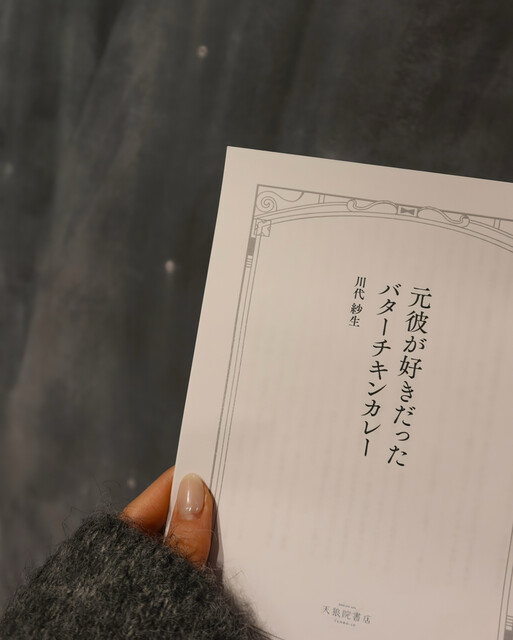 元彼が好きだった
バターチキンカレー
川代 紗生
天狼院書店